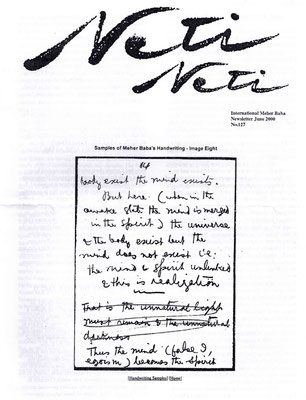 Neti
Neti
International Meher Baba
Newsletter June 2000
No.127
Samples of Meher Baba's Handwriting - Image Eight
body exist the mind exists.
But here (when in the
aware state the mind is merged
in the Spirit) the universe
& the body exist but the
mind does not exist i.e.
the mind & spirit unlinked
& this is realization
That is the unnatural light
must remain & the unnatural
darkness
Thus the mind (false I,
egoism) becomes the Spirit
[Handwriting Samples] [Home]